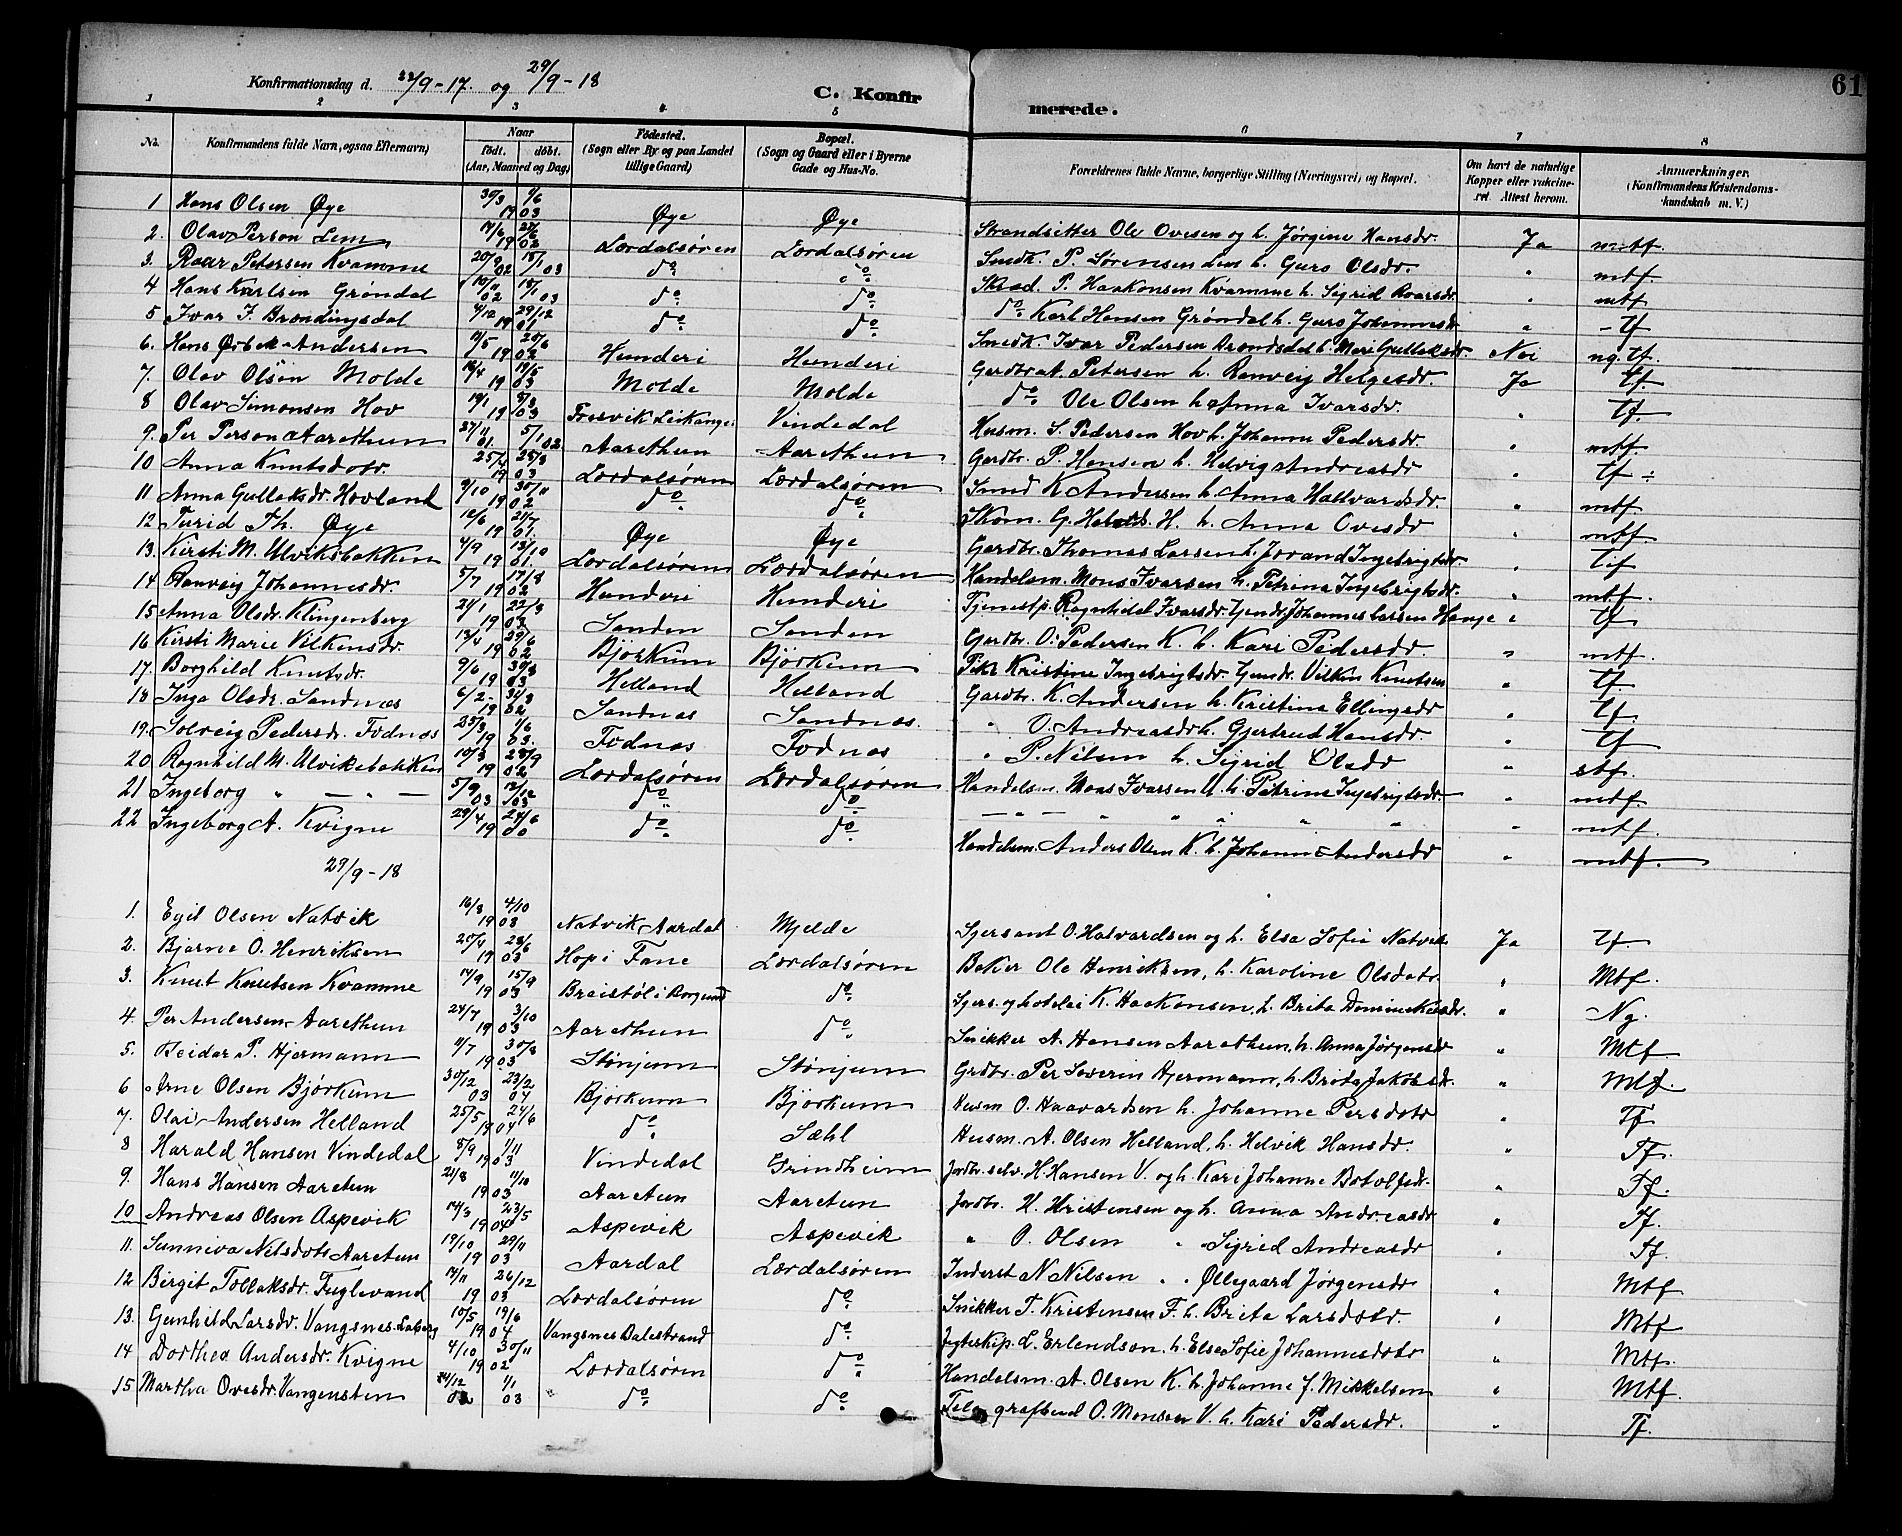 61
Konfirmationsdag d. 22/9-17. og 29/9-18
C. Konfirmerede.
1 2 3 4 5 6 7 8
No. Konfirmandens fulde Navn, ogsaa Efternavn) Naar født. døbt. (Aar, Maaned og Dag) Fødested. (Sogn eller By og paa Landet tillige Gaard) Bopæl. (Sogn og Gaard eller i Byerne Gade og Hus-No. Forældrenes fulde Navne, borgerlige Stilling (Næringsvei) og Bopæl. Om havt de naturlige Kopper eller vakcineret. Attest herom. Anmærkninger. (Konfirmandens Kristendomskundskab m. V.)
1 Hans Olsen Øye 30/3 1/6 1903 Øye Øye Strandsitter Ole Ovesen og h. Jørgine Hansdr. Ja mtf.
2. Olav Person Lem 1902 Lærdalsøren Lærdalsøren Smdk. P. Sørensen Lem h. Guro Olsdr. " mtf.
3. Roar Petersen Kvamme 02 03 do do Skræd. P. Haakonsen Kvamme h. Sigrid Roarsdr. " mtf
4 Hans Karlsen Grøndal 02 03 do do do Karl Hansen Grøndal h. Guro Johannesdr " tf
5 Ivar I. Brændingsdal 4/12 29/12 1901 do do Smedk. Ivar Pedersen h. Mari Gullaksdr. Nei ng. tf.
6. Hans Ørbek Andersen 1902 Hunderi Hunderi Gardbr. A. Petersen h. Ranveig Helgesdr. Ja tf
7. Olav Olsen Molde 1903 Molde Molde do Ole Olsen h. Anna Ivarsdr. " tf.
8 Olav Simonsen Hov 1903 Fresvik Leikanger Vindedal Husm. S. Pedersen Hov h. Johanne Pedersdr. " mtf.
9. Per Person Aarethun 27/11 01. 5/1 02 Aarethun Aarethun Gardbr. P. Hansen h. Helvig Andreasdr " tf ÷
10 Anna Knutsdotr. 1903 Lærdalsøren Lærdalsøren Smed K. Andersen h. Anna Hallvardsdr. " mtf
11 Anna Gullaksdr. Hovland 9/10 30/11 1902 do do Skom. G. H. h. Anna Ovesdr " mtf.
12 Turid Th. Øye 1901. Øye Øye Gardbr. Thomas Larsen h. Jorand Ingebrigtsdr. " tf
13. Kirsti M. Ulviksbakken 4/9 13/10 1901. Lærdalsøren Lærdalsøren Handelsm. Mons Ivarsen h. Petrina Ingebrigtsdr. " mtf.
14. Ranveig Johannesdr. 5/7 17/8 1902 Hunderi Hunderi Tjenestp. Ragnhild Ivarsdr. Ungdr. Johannes Larsen Hauge " tf
15. Anna Olsdr. Klingenberg 1903 Sanden Sanden Gardbr. O. Pedersen K. h. Kari Pedersdr. " mtf.
16 Kirsti Marie Vilkensdr. 13/4 29/6 1902 Bjørkum Bjørkum Pike Kristine Ingebrigtsdr. Ungdr. Vilkin Knutsen " tf.
17. Borghild Knutsdr. 9/6 30/8 1903 Helland Helland Gardbr. K. Andersen h. Kristina Ellingsdr " tf
18 Inga Olsdr. Sandnæs 6/2 1902 Sandnæs Sandnæs. " O. Andreasdr h. Gjertrud Hansdr. " tf
19. Solveig Pedersdr. Fodnæs 1/6 1903. Fodnæs Fodnæs " P. Nilsen h. Sigrid Olsdr " stf.
20 Ragnhild M. Ulviksbakken 10/3 28/9 1902 Lærdalsøren Lærdalsøren Handelsm. Mons Ivarsen U. h. Petrina Ingebrigtsdr. " mtf
21 Ingeborg " — " — 5/9 03 13/12 03 do do — " — " " " " " " mtf.
22 Ingeborg A. Kvigne 29/4 24/6 1900 do do Handelsm. Anders Olsen K. h. Johanne Andersdr " mtf.
29/9-18
1. Egil Olsen Natvik 16/8 4/10 1903 Natvik, Aardal Mjelde Sersant O. Halvardsen og h. Elsa Sofie Natvik. Ja tf
2. Bjarne O. Henriksen 1903 Hop i Fane Lærdalsøren Baker Ole Henriksen, h. Karoline Olsdotr. " Mtf.
3. Knut Knutsen Kvamme 14/9 15/9 1903 Breistøl i Borgund do Sgers. og hoteleier K. Haakonsen, h. Brita Dominikusdr. " Ng.
4. Per Andersen Aarethun 24/7 3/10 1903 Aarethun do Snikker A. Hansen Aarethun, h. Anna Jørgensdr " Mtf
5. Reidar P. Hjermann 11/7 30/8 1903 Stønjum Stønjum Grdbr. Per Severin Hjermann, h. Brita Jakobsdr. " Mtf.
6 Arne Olsen Bjørkum 30/12 03 23/2 04 Bjørkum Bjørkum Husm O. Haavardsen h. Johanne Persdotr " Tf
7. Olai Andersen Helland 25/5 24/6 1904 do Sæhl Husm. A. Olsen Helland, h. Helvik Hansdr. " Tf.
8 Harald Hansen Vindedal 8/9 1/11 1903 Vindedal Grindheim Jordbr. selv. H. Hansen V. og h. Kari Johanne Botolfsdr. " Tf.
9. Hans Hansen Aaretun 21/8 11/10 1903 Aaretun Aaretun Jordbr. H. Kristensen og h. Anna Andreasdr " Tf.
10 Andreas Olsen Aspevik 14/3 23/5 1904 Aspevik Aspevik " O. Olsen " Sigrid Andreasdr " Tf.
11. Sunniva Nilsdotr Aaretun 19/10 29/11 1903 Aardal Lærdalsøren Inderst N Nilsen " " Øllegaard Jørgensdr " Mtf
12 Birgit Tollaksdr. Fuglevand 14/11 26/12 1903 Lærdalsøren do Snikker T. Kristensen F. h. Brita Larsdotr. " Mtf
13. Gunhild Larsdr. Vangsnes 10/5 19/6 1904 Vangsnes Balestrand do Jægteskip. L. Erlendsen, h. Else Sofie Johannesdotr " Mtf.
14 Dorthea Andersdr. Kvigne 4/10 30/11 1902 Lærdalsøren do Handelsm. A. Olsen K. h. Johanne J. Mikkelsen " Mtf.
15 Martha Ovesdr. Vangensten 24/12 1/1 03 " do do Telegrafbud O. Monsen V. h. Kari Pedersdr. " Tf.